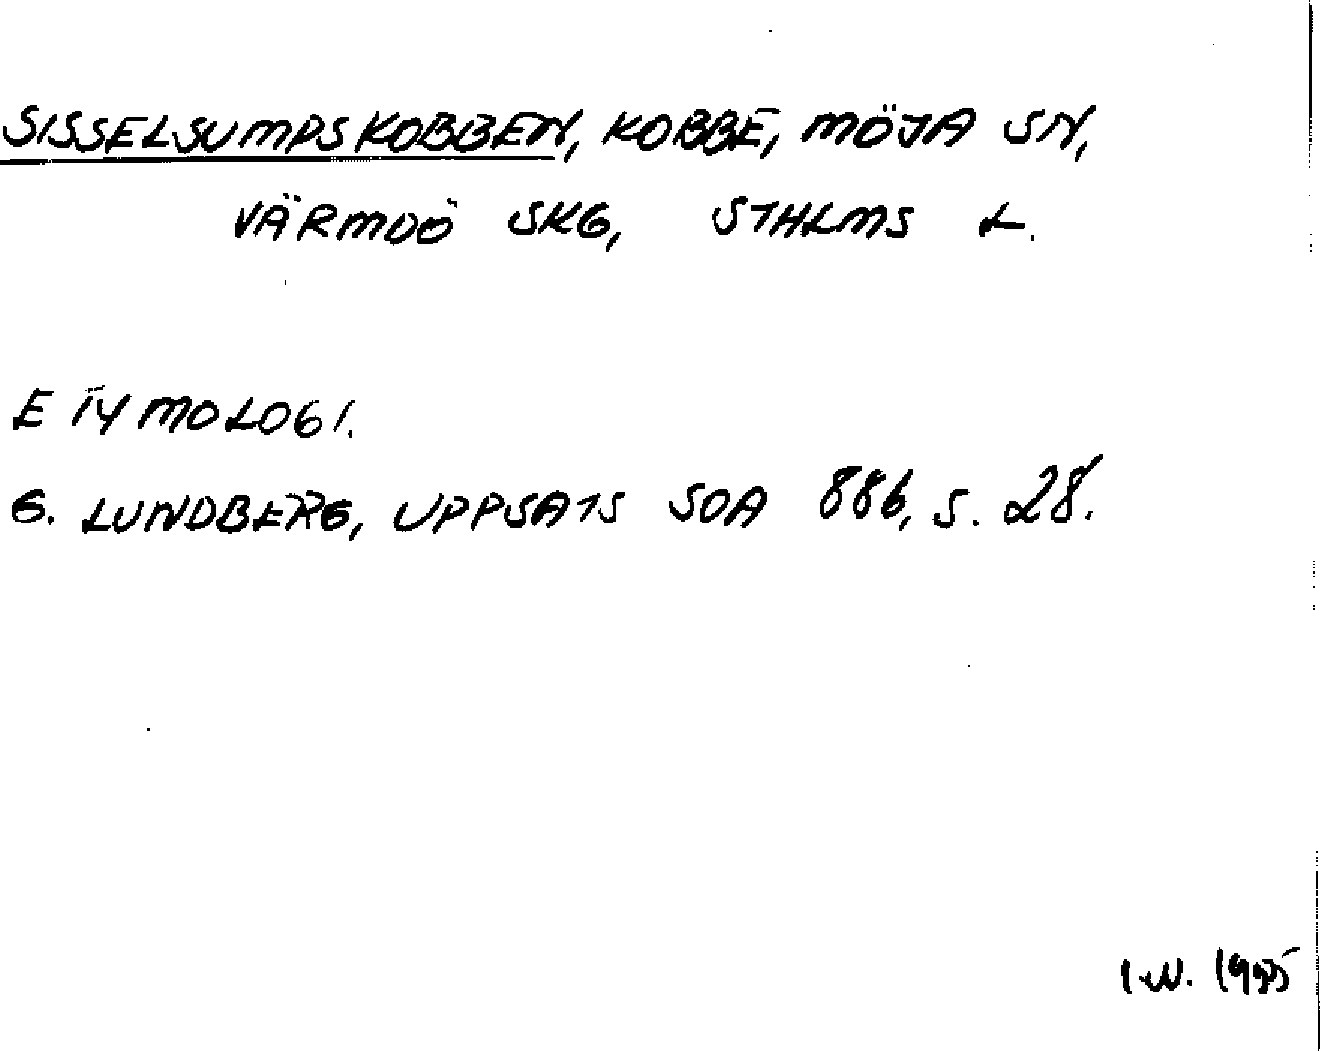 SISSELSUMPSKOBBEN, KOBBE, MÖJA SN,
VÄRMDÖ SKG, STHLMS L.
ETYMOLOGI.
G. LUNDBERG, UPPSATS SOA 886, S. 28.
I.W.